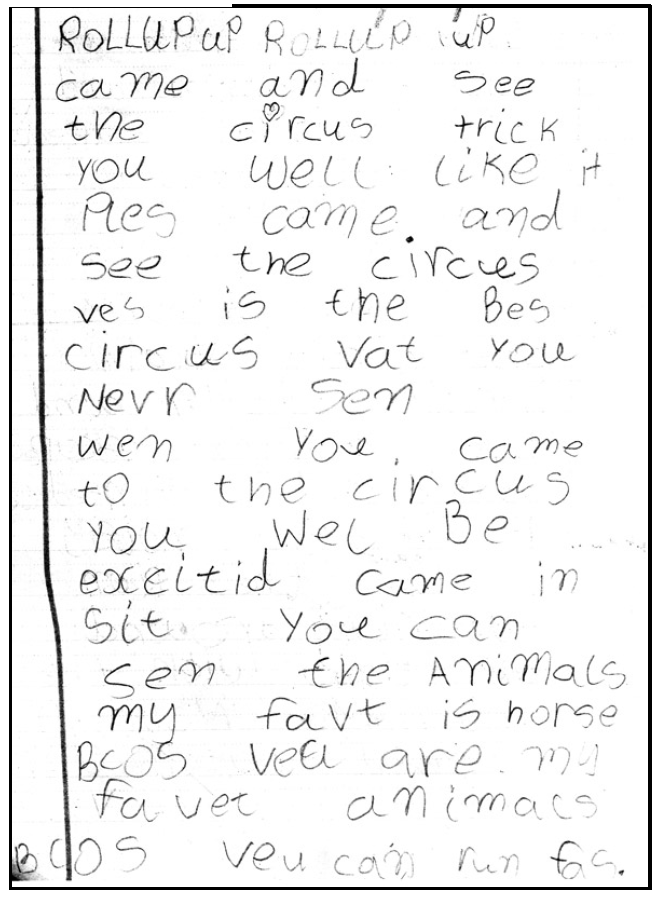 ROLLUP UP ROLLUP UP
came and see
the circus trick
you well like it
Ples came and
see the circues
ves is the Bes
circus vat you
Nevr Sen
wen you came
to the circus
you wel Be
excitid came in
Sit you can
sen the ANiMals
my favt is horse
BCOS veu are my
favet animals
BCOS veu can run fas.